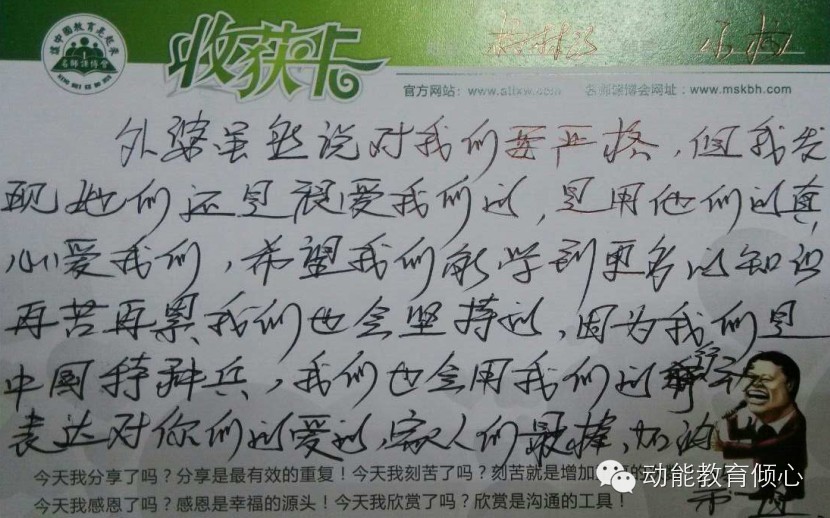 让中国教育亮起来
名师课博会
收获卡
官方网站：www.atfxw.com 名师课博会网址：www.mskbh.com
外婆虽然说对我们要严格，但我发
现她们还是很爱我们的，是用他们的真
心爱我们，希望我们能学到更多的知识
再苦再累我们也会坚持的，因为我们是
中国特种兵，我们也会用我们的行动
表达对你们的爱的，家人们最棒，加油
今天我分享了吗？分享是最有效的重复！今天我刻苦了吗？刻苦就是增加
今天我感恩了吗？感恩是幸福的源头！今天我欣赏了吗？欣赏是沟通的工具！
动能教育倾心